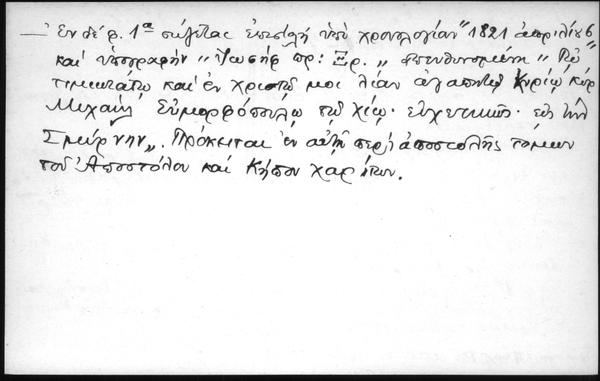 — Ἐν δέρ. 1ᾳ σώζεται ἐπιστολὴ ὑπὸ χρονολογίαν "1821 ἀπριλίου 6
καὶ ὑπογραφὴν "Ἰωσὴφ πρ: Ξρ. „ ἀπευθυνομένη "Τῷ
τιμιωτάτῳ καὶ ἐν χριστῷ μοι λίαν ἀγαπητῷ κυρίῳ κὺρ
Μιχαὴλ Εὐμορφόπούλῳ τῷ χίῳ· εὐχετικῶς· εἰς τὴν
Σμύρνην„. Πρόκειται ἐν αὐτῇ περὶ ἀποστολῆς τόμων
τοῦ Ἀποστόλου καὶ Κήπου χαρίτων.